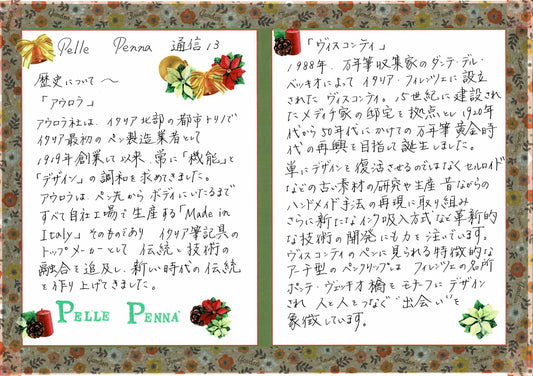 Pelle Penna 通信13
歴史について〜
「アウロラ」
アウロラ社は、イタリア北部の都市トリノで
イタリア最初のペン製造業者として
1919年創業して以来、常に「機能」と
「デザイン」の調和を求めてきました。
アウロラは、ペン先からボディにいたるまで
すべて自社工場で生産する「Made in
Italy」そのものであり イタリア筆記具の
トップメーカーとして 伝統と技術の
融合を追及し、新しい時代の伝統
を作り上げてきました。
PELLE PENNA
「ヴィスコンティ」
1988年、万年筆収集家のダンテ・デル・
ベッキオによって イタリア・フィレンツェに設立
された ヴィスコンティ。15世紀に建設され
たメディチ家の邸宅を拠点とし1920年
代から50年代にかけての万年筆黄金時
代の再興を目指して誕生しました。
単にデザインを復活させるのではなくセルロイド
などの古い素材の研究や生産 昔ながらの
ハンドメイド手法の再現に取り組み
さらに新たなインク吸入方式など革新的
な技術の開発にも力を注いでいます。
ヴィスコンティのペンに見られる特徴的な
アーチ型のペンクリップは フィレンツェの名所
ポンテ・ヴェッキオ橋をモチーフにデザイン
され 人と人をつなぐ"出会い"を
象徴しています。